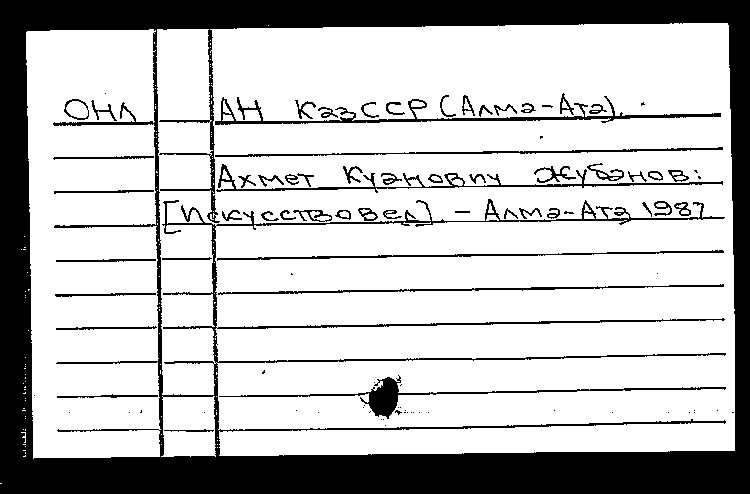 ОНЛ АН КазССР (Алма-Ата).
Ахмет Куанович Жубанов:
[Искусствовед]. - Алма-Ата 1987